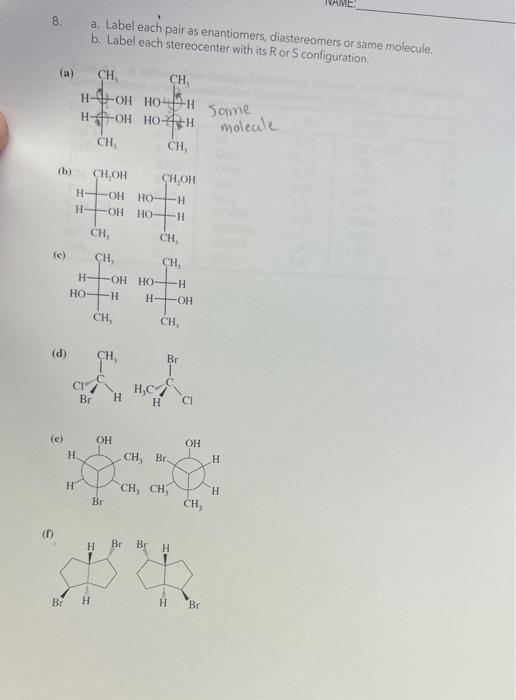 NAME:
8. a. Label each pair as enantiomers, diastereomers or same molecule.
b. Label each stereocenter with its R or S configuration.
(a) CH₃ CH₃
H OH HO H Same
H OH HO H molecule
CH₃ CH₃
(b) CH₂OH CH₂OH
H OH HO H
H OH HO H
CH₃ CH₃
(c) CH₃ CH₃
H OH HO H
HO H H OH
CH₃ CH₃
(d) CH₃ Br
C C
Cl H₃C
Br H H Cl
(e) OH OH
H CH₃ Br H
H CH₃ CH₃ H
Br CH₃
(f)
H Br Br H
Br H H Br